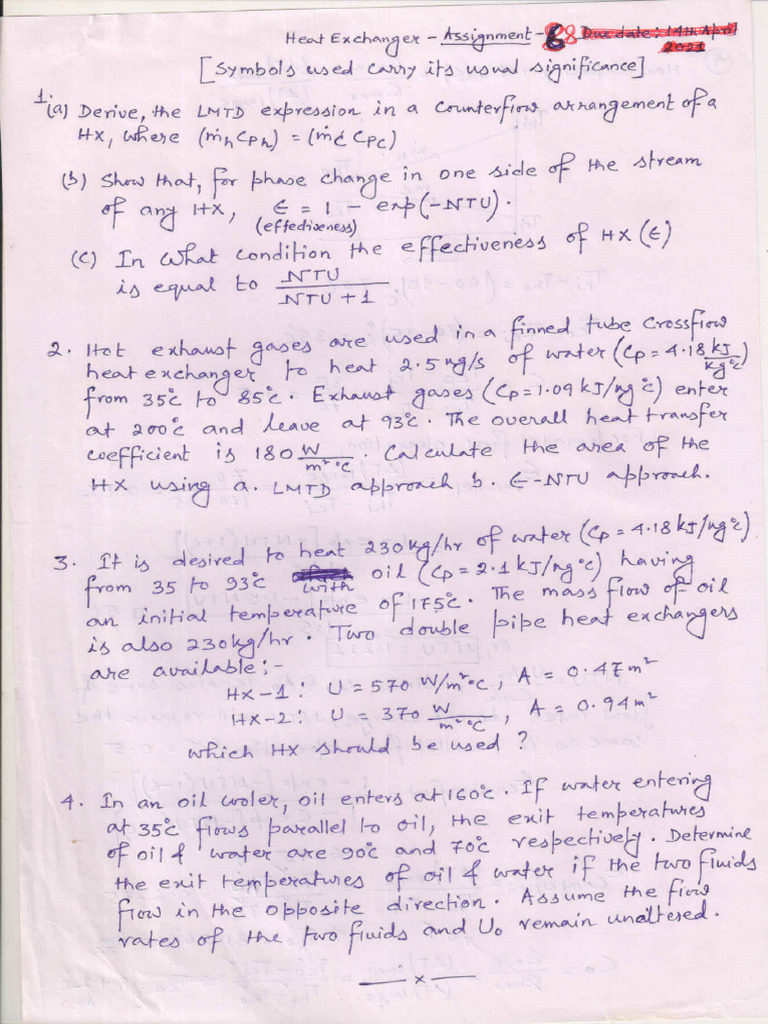 Heat Exchanger - Assignment - 6 8 Due date: 14th April
2021
[Symbols used carry its usual significance]
1.
(a) Derive, the LMTD expression in a counterflow arrangement of a
HX, where (ṁh Cph) = (ṁc Cpc)
(b) Show that, for phase change in one side of the stream
of any HX, ε = 1 - exp(-NTU).
(effectiveness)
(c) In what condition the effectiveness of HX (ε)
is equal to NTU / NTU + 1
2. Hot exhaust gases are used in a finned tube crossflow
heat exchanger to heat 2.5 kg/s of water (Cp = 4.18 kJ/kg°c)
from 35°c to 85°c. Exhaust gases (Cp = 1.09 kJ/kg°c) enter
at 200°c and leave at 93°c. The overall heat transfer
coefficient is 180 W/m²°C. Calculate the area of the
HX using a. LMTD approach b. ε-NTU approach.
3. It is desired to heat 230 kg/hr of water (Cp = 4.18 kJ/kg°c)
from 35 to 93°c with oil (Cp = 2.1 kJ/kg°c) having
an initial temperature of 175°c. The mass flow of oil
is also 230 kg/hr. Two double pipe heat exchangers
are available:-
HX-1: U = 570 W/m²°c, A = 0.47 m²
HX-2: U = 370 W/m²°C, A = 0.94 m²
which HX should be used?
4. In an oil cooler, oil enters at 160°c. If water entering
at 35°c flows parallel to oil, the exit temperatures
of oil & water are 90°c and 70°c respectively. Determine
the exit temperatures of oil & water if the two fluids
flow in the opposite direction. Assume the flow
rates of the two fluids and Uo remain unaltered.
—x—